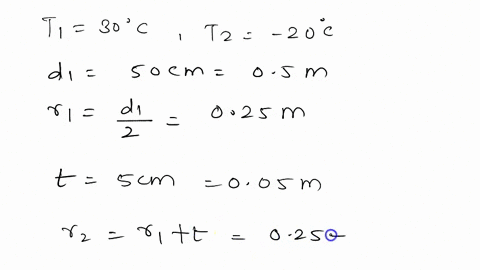 T₁ = 30°C , T₂ = -20°C
d₁ = 50cm = 0.5 m
r₁ = d₁/2 = 0.25 m
t = 5cm = 0.05 m
r₂ = r₁ + t = 0.25